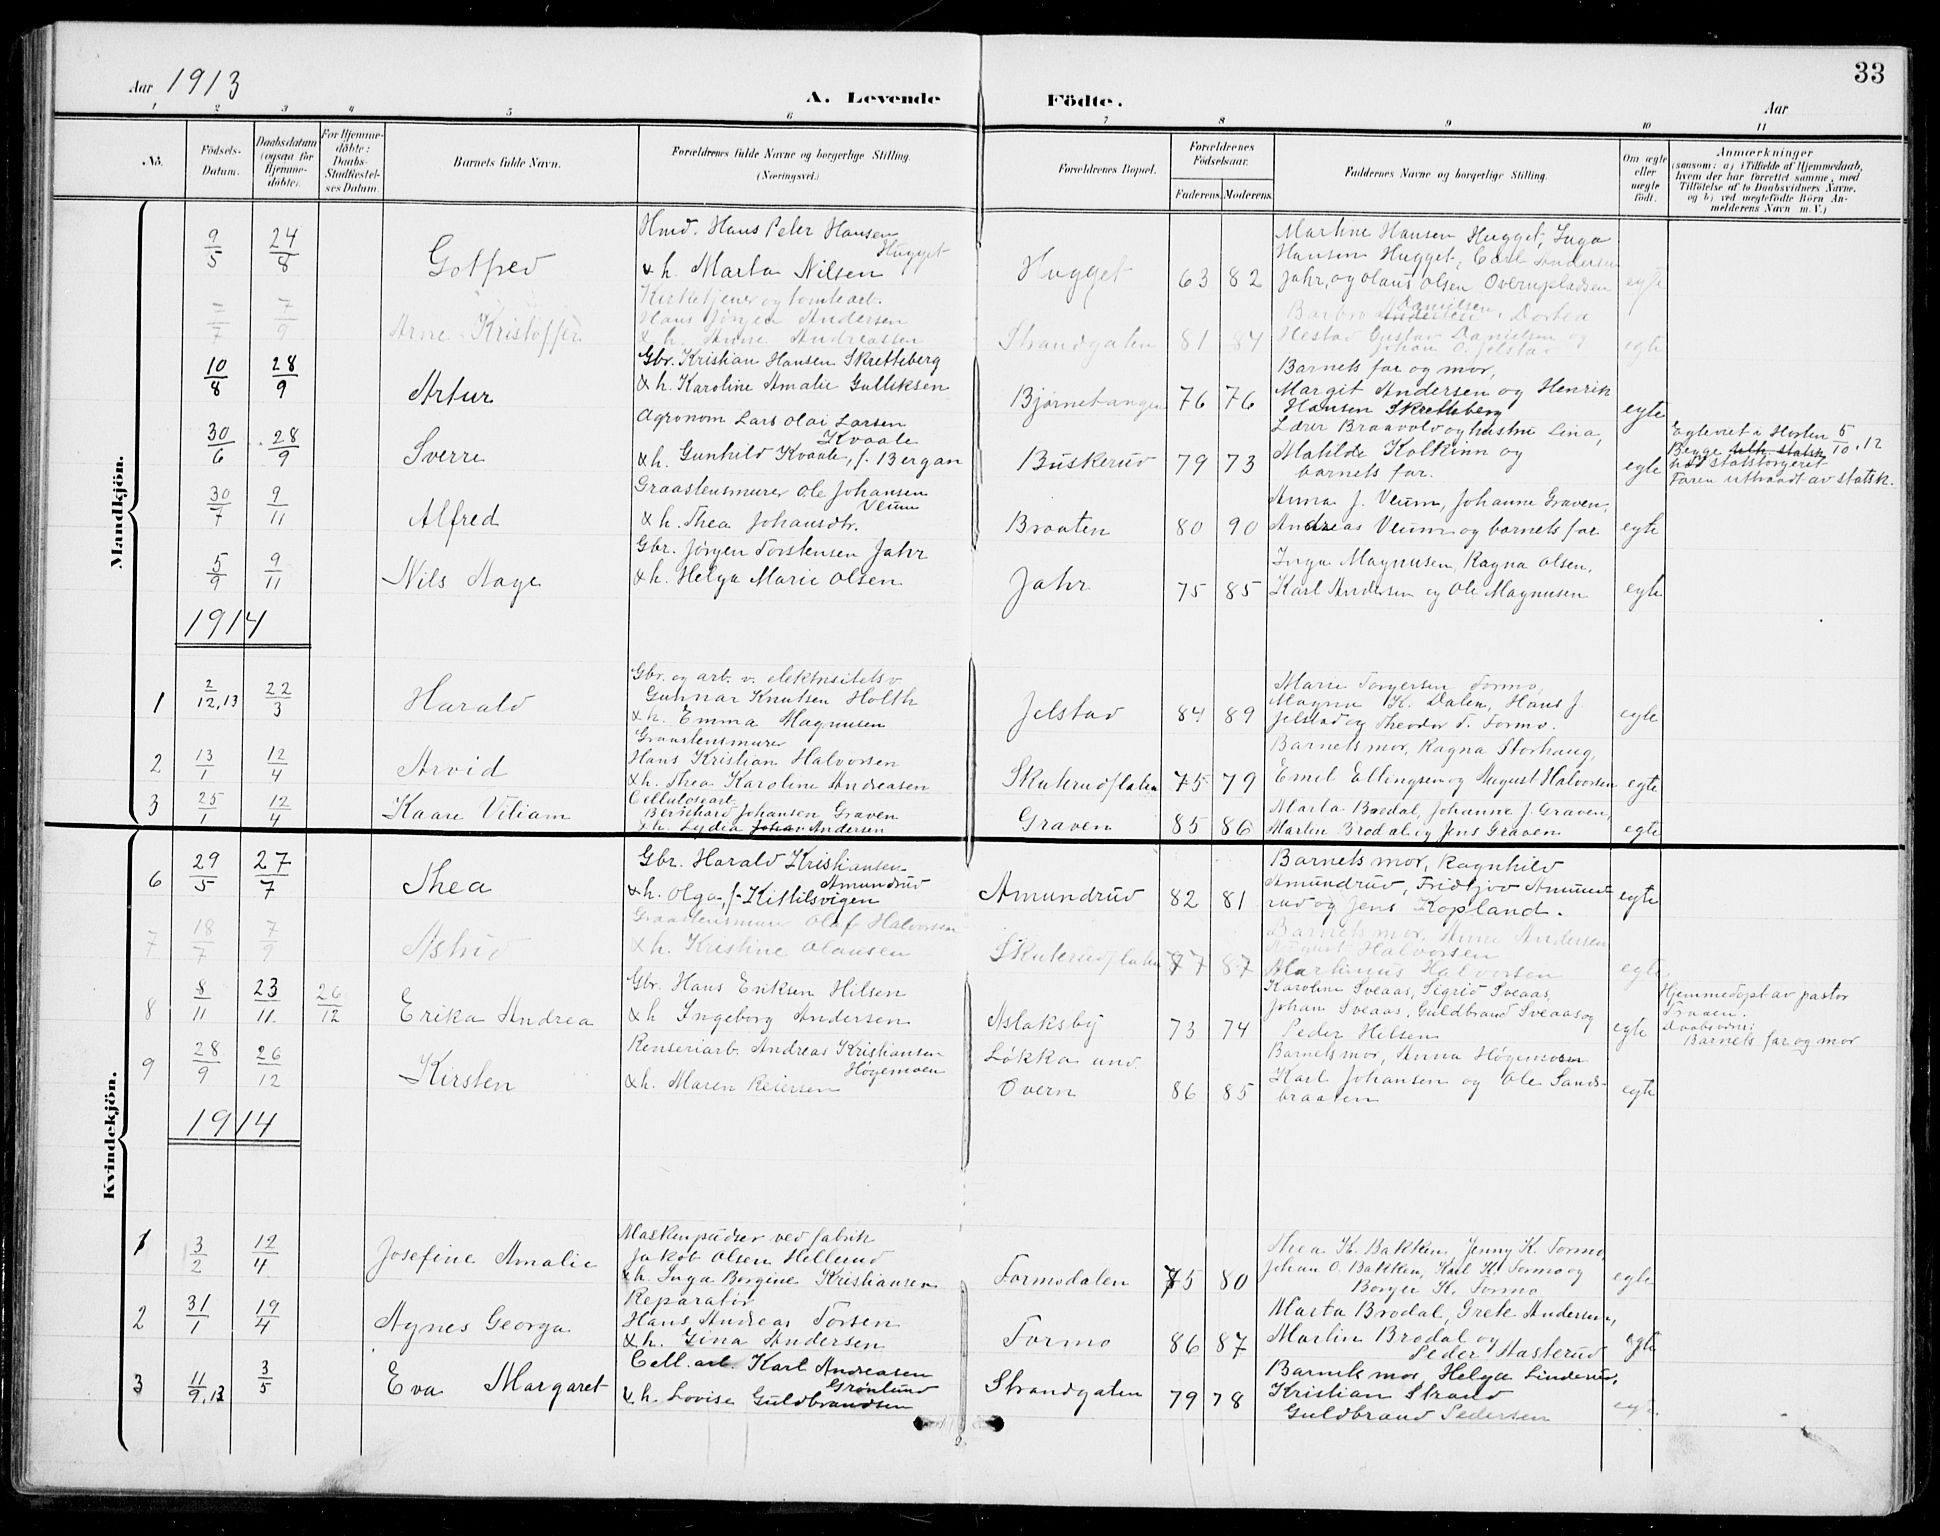 33
Aar 1913
A. Levende Födte.
Aar
1 2 3 4 5 6 7 8 9 10 11
No.
Födsels-Datum.
Daabsdatum (ogsaa for Hjemme-döbte).
For Hjemme-döbte: Daabs-Stadfæstel-ses Datum.
Barnets fulde Navn.
Forældrenes fulde Navne og borgerlige Stilling. (Næringsvei.)
Forældrenes Bopæl.
Forældrenes Födselsaar.
Faderens. Moderens.
Faddernes Navne og borgerlige Stilling.
Om ægte eller uægte født.
Anmærkninger
(saasom: a) i Tilfælde af Hjemmedaab,
hvem der har forrettet samme, med
Tilföielse af to Daabsvidners Navne,
og b) ved uægtefödte Börn An-
melderens Navn m. V.)
Mandkjön.
9/5 24/8 Gotfred
Hmd. Hans Peter Hansen
Hugget
& h. Marta Nilsen
Hugget 63 82
Martine Hansen Hugget, Inga
Hansen Hugget, Carl Andersen
Jahr, og Olaus Olsen Overnpladsen
egte
7/7 7/9 Arne Kristoffer
Kirketjener og tomtearb.
Hans Jørgen Andersen
& h. Anne Andreassen
Strandgaten 81 84
Barbro Danielsen, Dortea
Hestad Gustav Danielsen og
Johan O. Jelstad
egte
10/8 28/9 Artur
Gbr. Kristian Hansen Skretteberg
& h. Karoline Amalie Gulliksen
Bjørnetangen 76 76
Barnets far og mor,
Margit Andersen og Henrik
Hansen Skretteberg
egte
30/6 28/9 Sverre
Agronom Lars Olai Larsen
Kvaale
& h. Gunhild Kvaale, f. Bergan
Buskerud 79 73
Lærer Braavold og hustru Lina,
Matilde Kolkinn og
barnets far.
egte
Egteviet i Horten 5/10.12
Begge
Faren uttraadt av statsk.
30/7 9/11 Alfred
Graastensmurer Ole Johansen
Veum
& h. Thea Johansdtr.
Braaten 80 90
Anna J. Veum, Johanne Graven,
Andreas Veum og barnets far
egte
5/9 9/11 Nils Aage
Gbr. Jørgen Torstensen Jahr
& h. Helga Marie Olsen
Jahr 75 85
Inga Magnusen, Ragna Olsen,
Karl Andersen og Ole Magnusen
egte
1914
1 2/12,13 22/3 Harald
Gbr. og arb. v. elektrisitetsv.
Gunnar Knutsen Holth
& h. Emma Magnusen
Jelstad 84 89
Marie Torgersen Formo,
Magna K. Dalen, Hans J.
Jelstad og Theodor T. Formo.
egte
2 13/1 12/4 Arvid
Graastensmurer
Hans Kristian Halvorsen
& h. Thea Karoline Andreasen
Skuterudflaten 75 79
Barnets mor, Ragna Storhaug,
Emil Ellingsen og August Halvorsen
egte
3 25/1 12/4 Kaare Viliam
Cellulosearb.
Bernhard Johansen Graven
& h. Lydia Johan Andersen
Graven 85 86
Marta Brodal, Johanne J. Graven,
Martin Brodal og Jens Graven
egte
Kvindekjön.
6 29/5 27/7 Thea
Gbr. Harald Kristiansen
Amundrud
& h. Olga, f. Kittilsvigen
Amundrud 82 81
Barnets mor, Ragnhild
Amundrud, Fridtjov Amund-
rud og Jens Kopland.
egte
7 18/7 7/9 Astrid
Graastensmurer Olaf Halvorsen
& h. Kristine Olausen
Skuterudflaten 87 87
Barnets mor, Anne Andersen
August Halvorsen
Martinius Halvorsen
egte
8 8/11 23/11 26/12 Erika Andrea
Gbr. Hans Eriksen Hilsen
& h. Ingeborg Andersen
Aslaksby 73 74
Karoline Sveaas, Sigrid Sveaas,
Johan Sveaas, Guldbrand Sveaas og
Peder Helsen
egte
Hjemmedøpt av pastor
Traaen.
Daabsvidne:
Barnets far og mor
9 28/9 26/12 Kirsten
Renseriarb. Andreas Kristiansen
Høgemoen
& h. Maren Reiersen
Løkka und.
Overn 86 85
Barnets mor, Anna Høgemoen
Karl Johansen og Ole Sands-
braaten
egte
1914
1 3/2 12/4 Josefine Amalie
Maskinpudser ved fabrik
Jakob Olsen Hellerud
& h. Inga Borgine Kristiansen
Formodalen 75 80
Thea K. Bakken, Jenny K. Formo,
Johan O. Bakken, Karl H. Formo og
Borger K. Formo
egte
2 31/1 19/4 Agnes Georga
Reparatør
Hans Andreas Torsen
& h. Gina Andersen
Formo 86 87
Marta Brodal, Grete Andersen,
Martin Brodal og
Peder Aasterud
egte
3 11/9,13 3/5 Eva Margaret
Cell. arb. Karl Andreasen
Grønlund
& h. Lovise Guldbrandsen
Strandgaten 79 78
Barnets mor, Helga Linderud,
Kristian Strand
Guldbrand Pedersen
egte